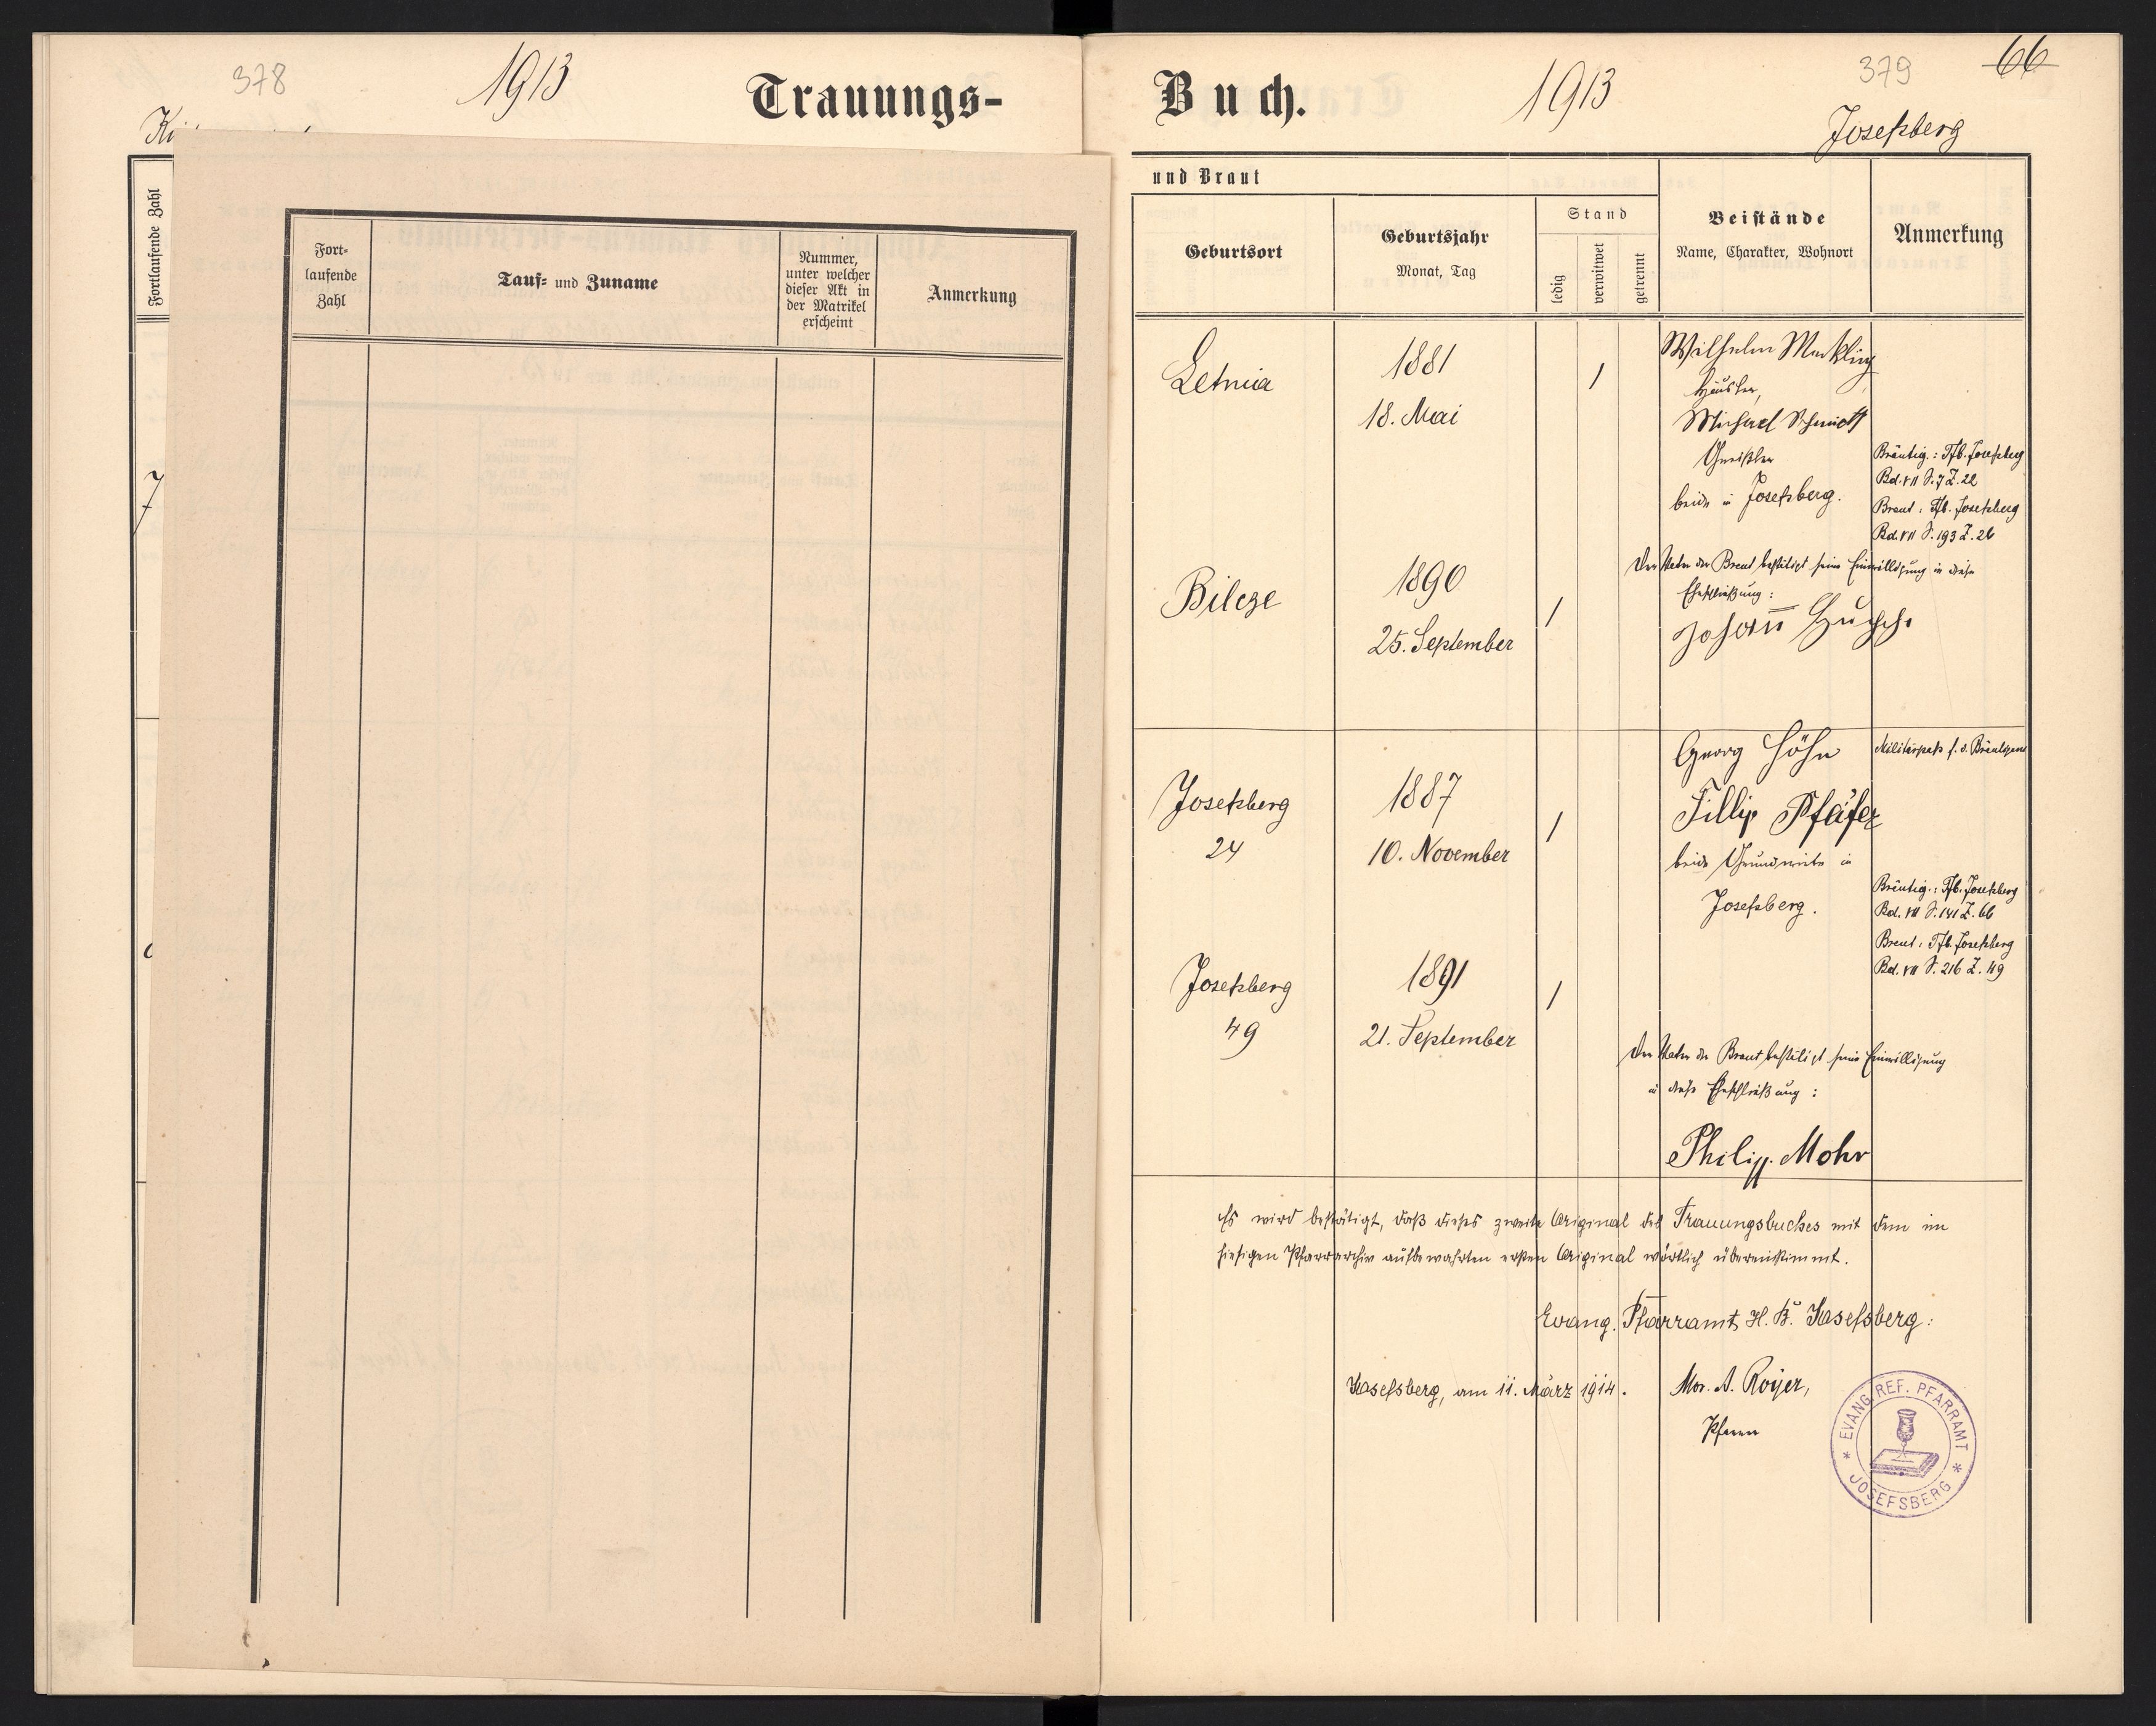 378
1913
Trauungs-
Fortlaufende Zahl
7
Fort-
laufende
Zahl
Tauf- und Zuname
Nummer,
unter welcher
dieser Akt in
der Matrikel
erscheint
Anmerkung
Buch.
1913
379
66
Josefsberg
und Braut
Geburtsort
Geburtsjahr
Monat, Tag
Stand
ledig
verwitwet
getrennt
Beistände
Name, Charakter, Wohnort
Anmerkung
Letnia
1881
18. Mai
/
Wilhelm Merkling
Häusler,
Michael Schmidt
beide in Josefsberg.
Bräutig.: Tfb. Josefsberg
Bd. VII S. 7 Z. 22
Braut: Tfb. Josefsberg
Bd. VII S. 193 Z. 26
Bilcze
1890
25. September
/
Der Vater der Braut bestätigt seine Einwilligung in diese
Eheschließung:
Johann
Josefsberg
24
1887
10. November
/
Georg Höhn
Fillip Pfeifer
beide Grundwirte in
Josefsberg.
Militärpaß f. d. Bräutigam
Bräutig.: Tfb. Josefsberg
Bd. VII S. 141 Z. 66
Braut: Tfb. Josefsberg
Bd. VII S. 216 Z. 49
Josefsberg
49
1891
21. September
/
Der Vater der Braut bestätigt seine Einwilligung
in diese Eheschließung:
Philipp Mohr
Es wird bestätigt, daß dieses zweite Original des Trauungsbuches mit dem im
hiesigen Pfarrarchiv aufbewahrten ersten Original wörtlich übereinstimmt.
Evang. Pfarramt H. B. Josefsberg:
Josefsberg, am 11. März 1914.
Mor. A. Royer,
Pfarrer
* EVANG. REF. PFARRAMT *
JOSEFSBERG